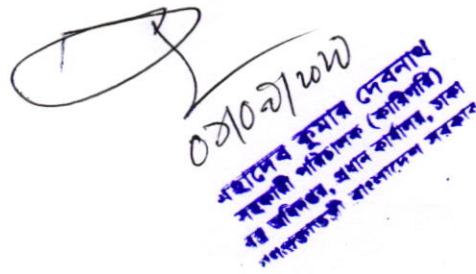 মহাদেব কুমার দেবনাথ
সহকারী পরিচালক (কারিগরি)
বস্ত্র অধিদপ্তর, প্রধান কার্যালয়, ঢাকা
গণপ্রজাতন্ত্রী বাংলাদেশ সরকার